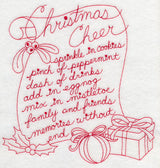 Christmas
Cheer
sprinkle in cookies
pinch of peppermint
dash of drinks
add in eggnog
mix in mistletoe
family and friends
memories without
end